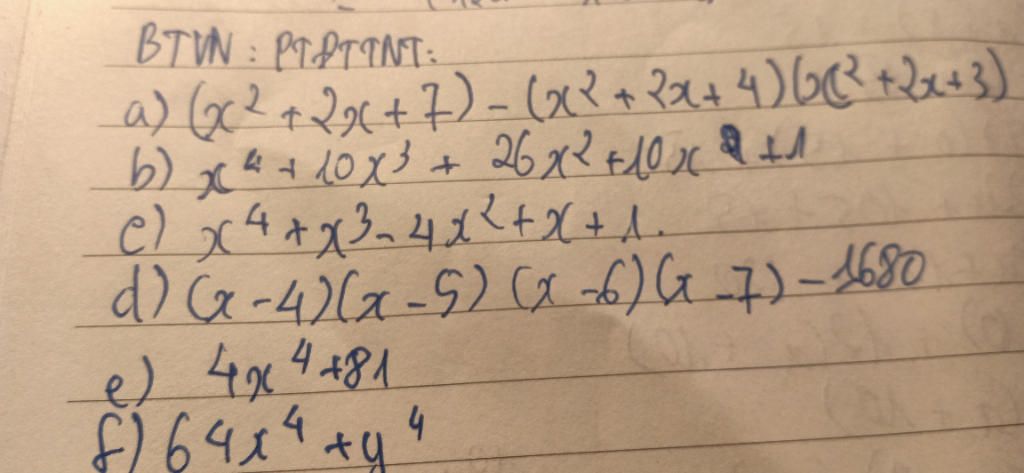 BTVN : PTĐTTNT:
a) (x² + 2x + 7) - (x² + 2x + 4)(x² + 2x + 3)
b) x⁴ + 10x³ + 26x² + 10x + 1
c) x⁴ + x³ - 4x² + x + 1.
d) (x - 4)(x - 5) (x - 6)(x - 7) - 1680
e) 4x⁴ + 81
f) 64x⁴ + y⁴